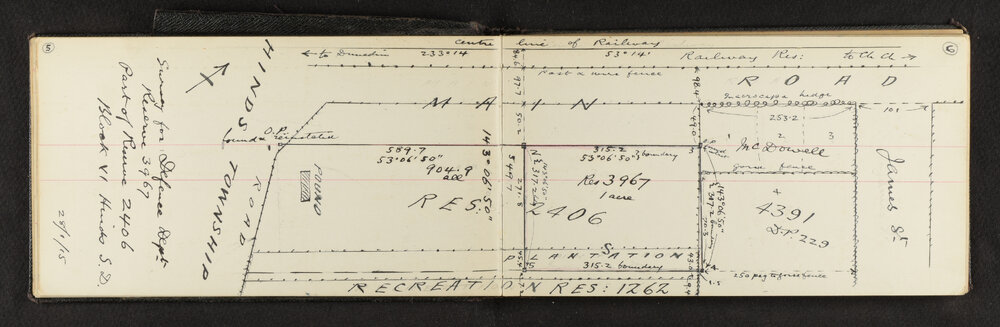 5
6
Survey for Defence Dept
Reserve 3967
Part of Reserve 2406
Block VI Hinds S.D.
28/1/15
HINDS TOWNSHIP
ROAD
Centre line of Railway
← to Dunedin
233°14'
53°14'
Railway Res:
to Ch Ch →
Post & wire fence
MAIN ROAD
Inaerocarpa hedge
253.2
101
O.P.
found & reinstated
589.7
53°06'50"
904.9
all
143°06'50"
315.2
53°06'50" boundary
Res 3967
1 acre
POUND
RES. 2406
PLANTATIONS
315.2 boundary
RECREATION RES: 1262
1
2
3
McDowell
Gorse fence
4
4391
D.P. 229
143°06'50"
James St
250 peg to gorse fence